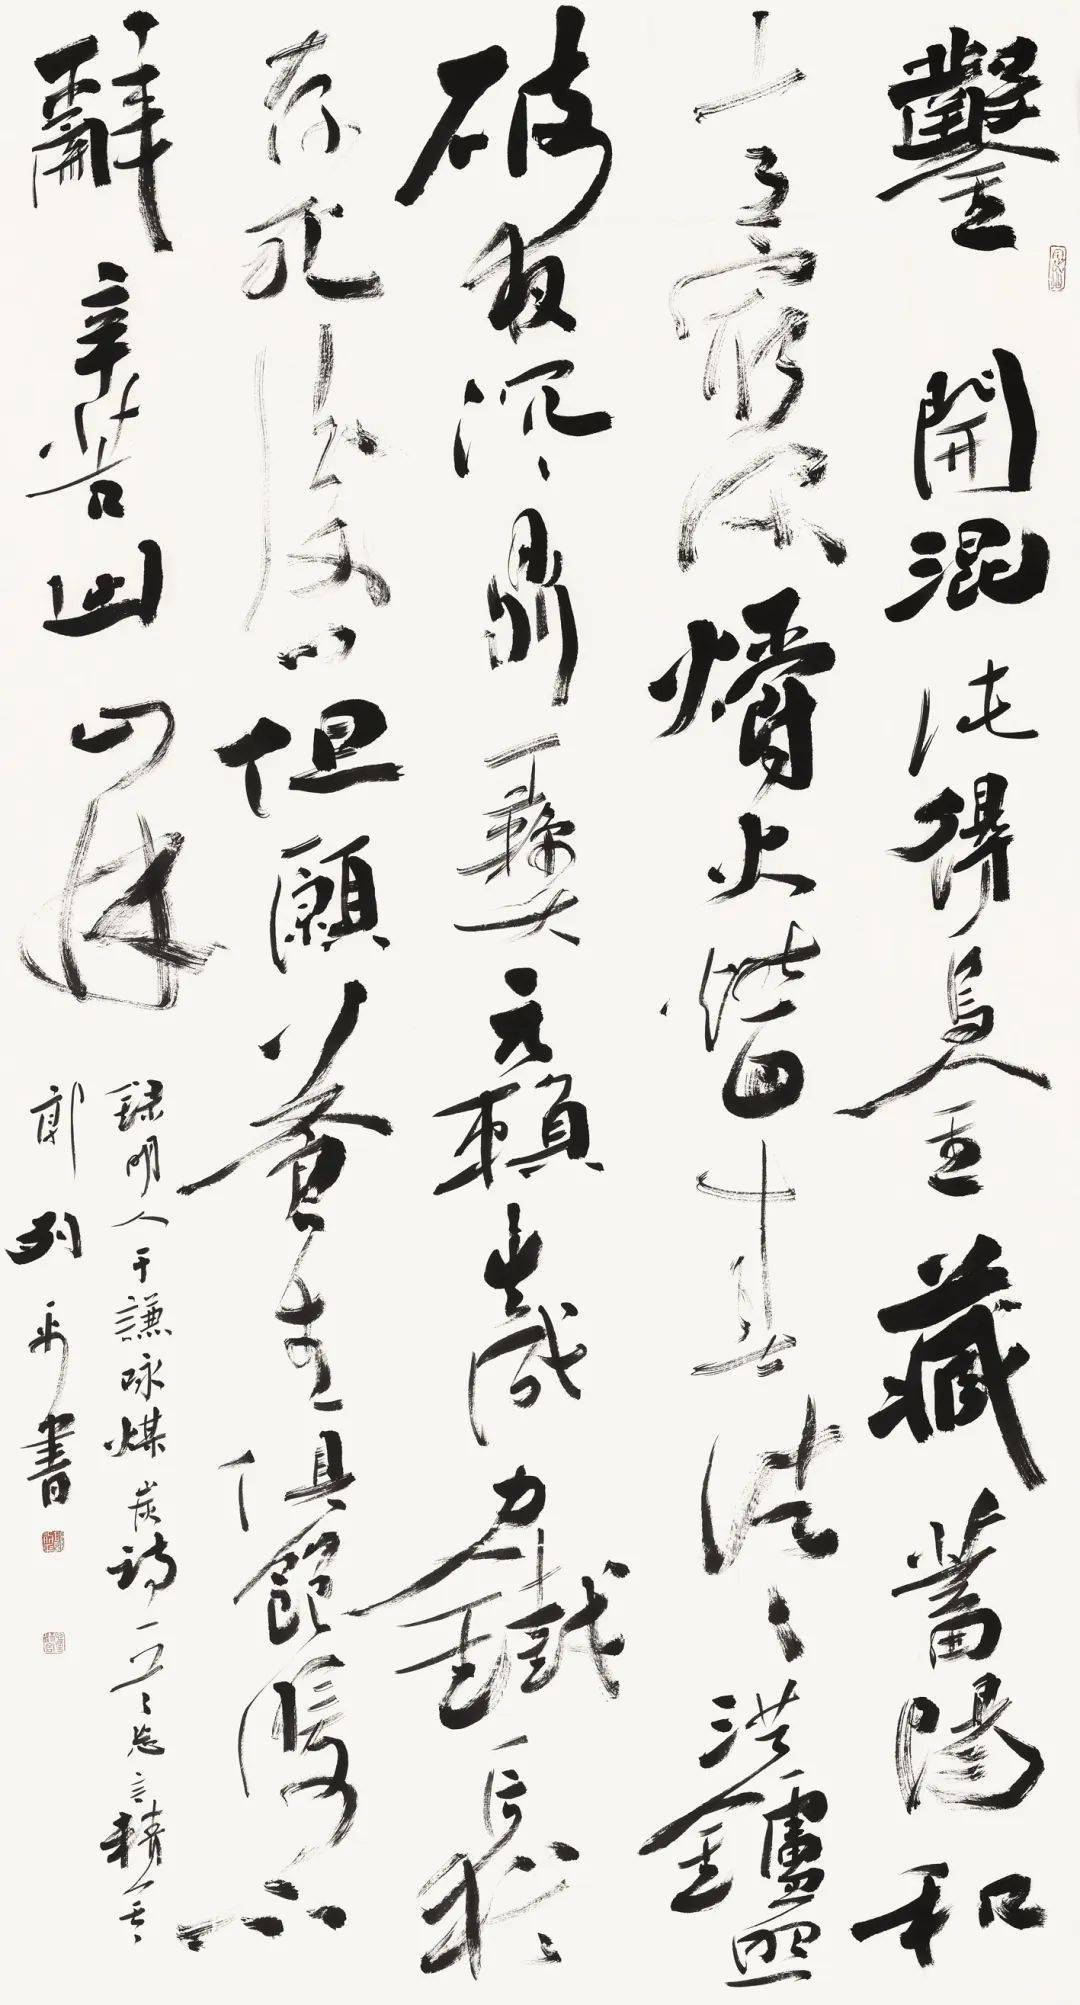 鑿開混沌得烏金藏蓄陽和
意最深爝火燃回春浩々洪鑪照
破夜沉々鼎彝元賴生成力鐵石猶
存死後心但願蒼生俱飽暖不
辭辛苦出山林
錄明人于謙咏煤炭詩一
郭列平書